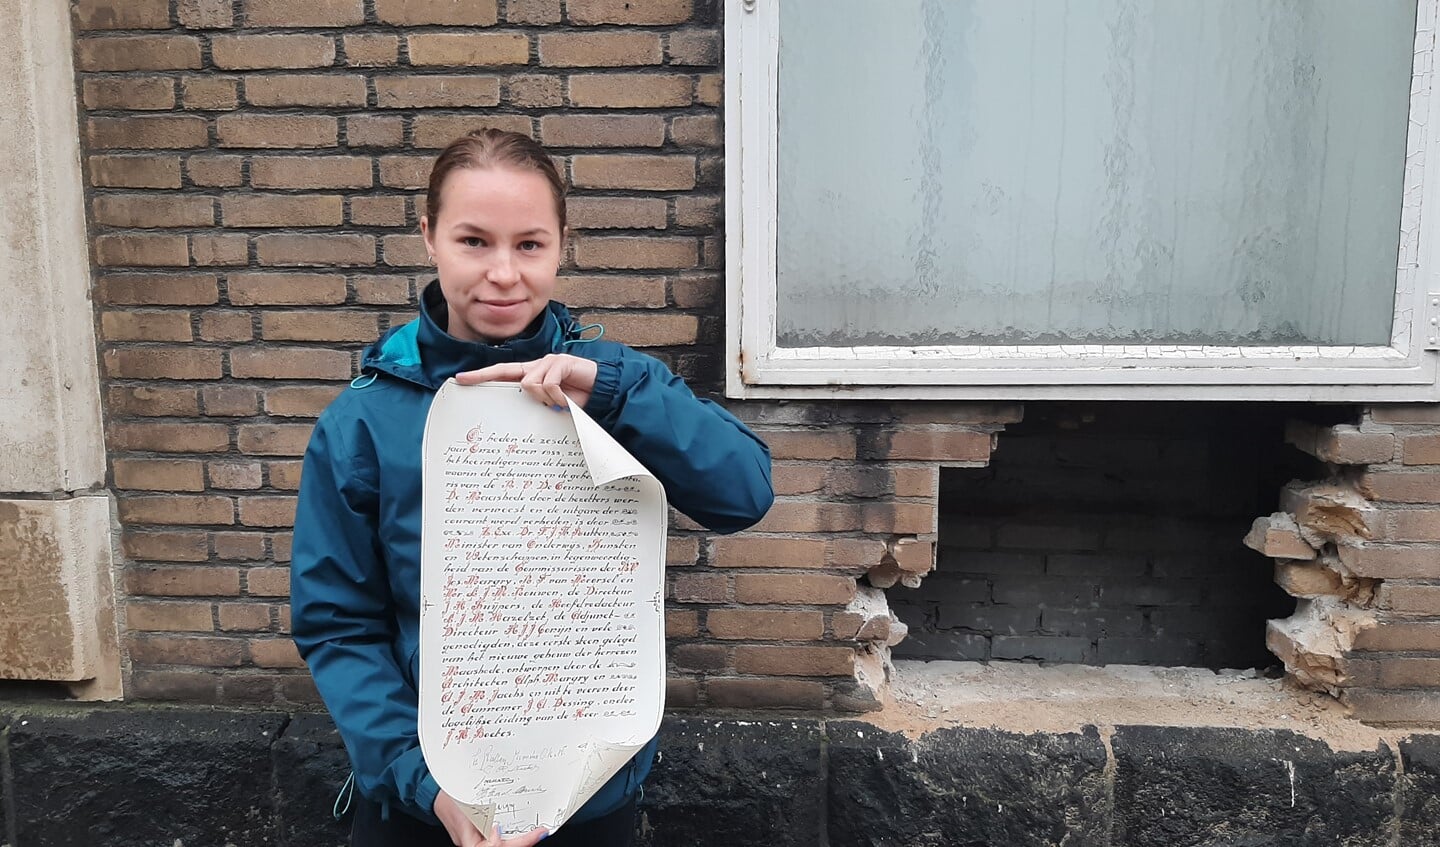 Op heden de zesde
jaar Onzes Heren 1953,
het beeindigen van de tweede
waarin de gebouwen en de
ris van de N. V. De Courant
De Maasbode door de bezetters wer-
den verwoest en de uitgave der
courant werd verboden, is door
Z. Exc. Dr. F. J. Th. Rutten
Minister van Onderwijs, Kunsten
en Wetenschappen, in tegenwoordig-
heid van de Commissarissen der N.V.
Jos Margry, B. F. van Meersel en
Mr. L. J. M. Bouwen, de Directeur
J. H. Kuijpers, de Hoofdredacteur
L. J. M. Hazelzet, de Adjunct-
Directeur H J J Conijn en vele
genodigden, deze eerste steen gelegd
van het nieuwe gebouw der herrezen
Maasbode, ontworpen door de
Architecten Alph. Margry en
A. J. M. Jacobs en uit te voeren door
de Aannemer J. A. Dessing, onder
dagelijkse leiding van de Heer
J. H. Boetes.